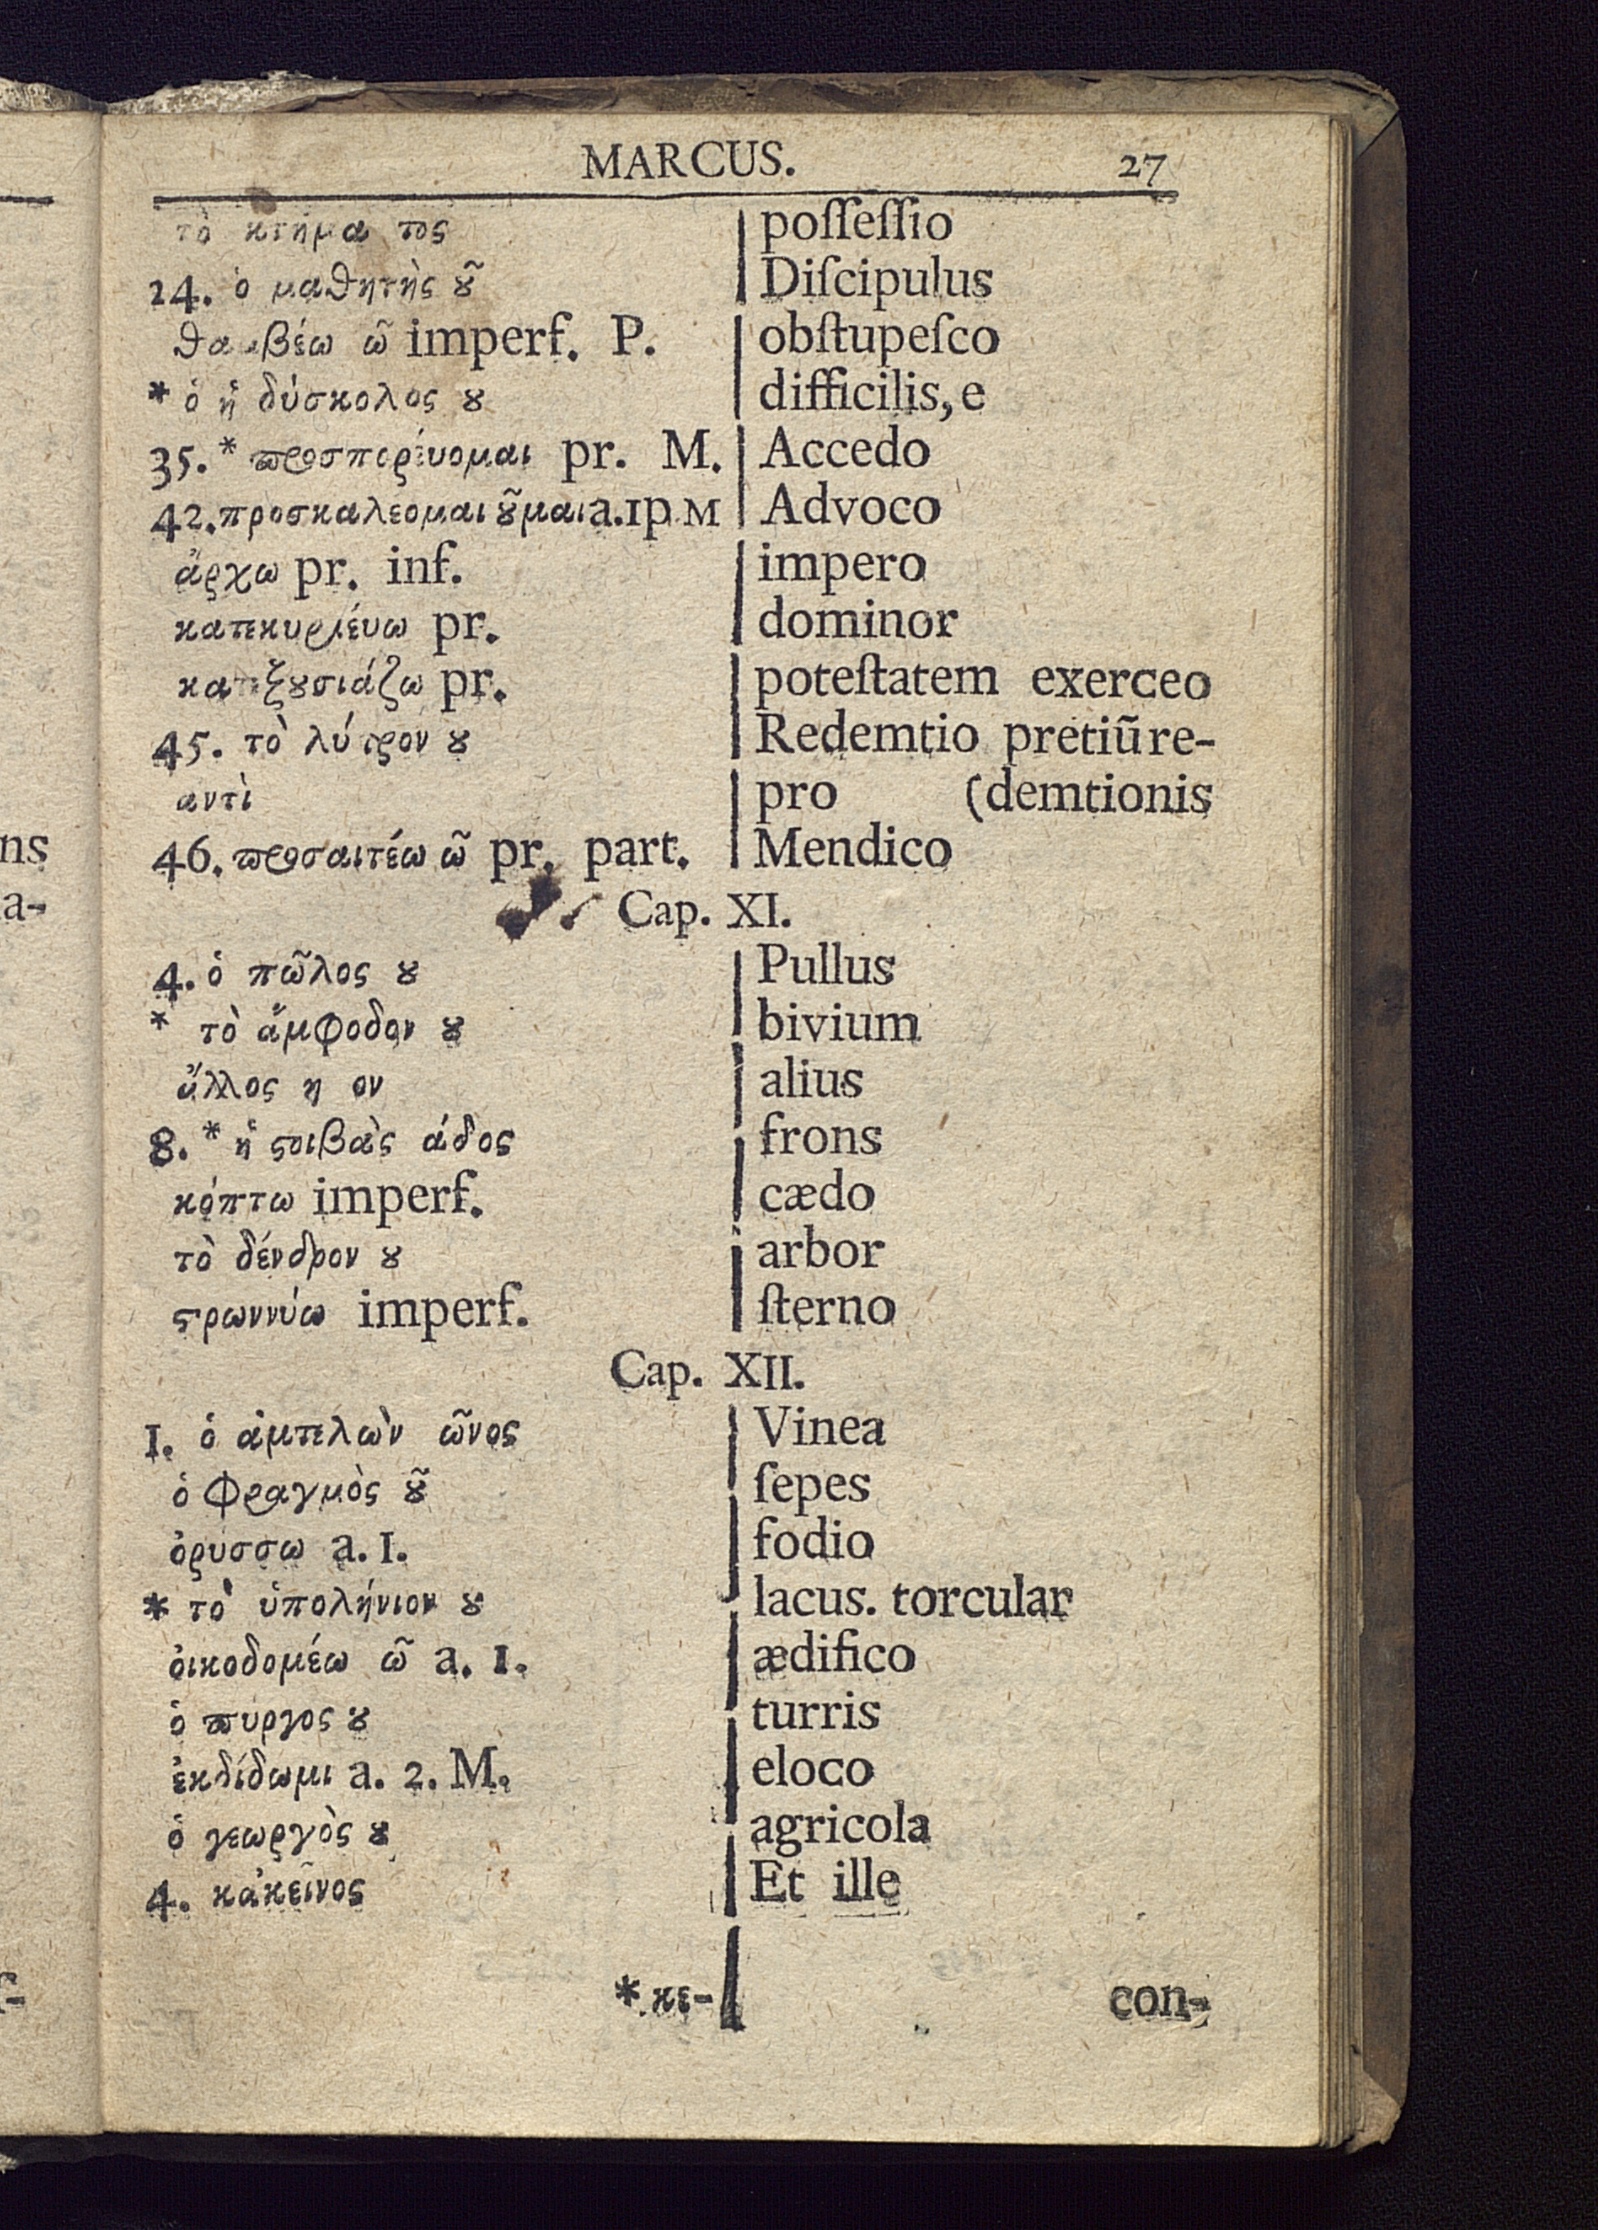 MARCUS. 27
τὸ κτῆμα τος | poſſeſſio
24. ὁ μαθητὴς ȣ͂ | Diſcipulus
θαμβέω ῶ imperf. P. | obſtupeſco
* ὁ ἡ δύσκολος ȣ | difficilis, e
35. * προσπορεύομαι pr. M. | Accedo
42. προσκαλεομαι ȣ͂μαι a. 1 p M | Advoco
ἄρχω pr. inf. | impero
κατακυριέυω pr. | dominor
κατεξȣσιάζω pr. | poteſtatem exerceo
45. τὸ λύτρον ȣ | Redemtio pretiũ re-
αντὶ | pro (demtionis
46. προσαιτέω ῶ pr. part. | Mendico
Cap. XI.
4. ὁ πῶλος ȣ | Pullus
* τὸ ἄμφοδον ȣ | bivium
ἄλλος η ον | alius
8. * ἡ ϛοιβὰς άδος | frons
κόπτω imperf. | cædo
τὸ δένδρον ȣ | arbor
ϛρωννύω imperf. | ſterno
Cap. XII.
1. ὁ ἀμπελὼν ῶνος | Vinea
ὁ φραγμὸς ȣ͂ | ſepes
ὀρυσσω a. 1. | fodio
* τὸ ὑπολήνιον ȣ | lacus. torcular
οἰκοδομέω ῶ a. 1. | ædifico
ὁ πυργος ȣ | turris
ἐκδίδωμι a. 2. M. | eloco
ὁ γεωργὸς ȣ | agricola
4. κἀκεῖνος | Et ille
* κε- | con-
ns
a-